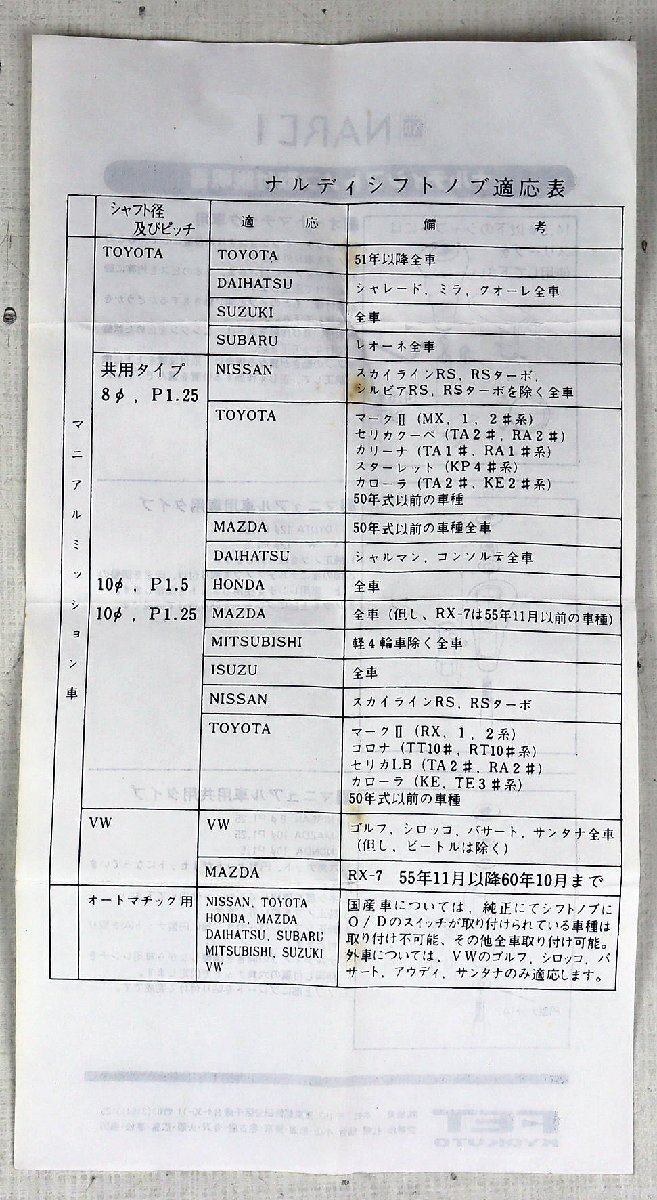 ナルディシフトノブ適応表
シャフト径
及びピッチ
適応
備考
マニアルミッション車
TOYOTA
TOYOTA
51年以降全車
DAIHATSU
シャレード、ミラ、クオーレ全車
SUZUKI
全車
SUBARU
レオーネ全車
共用タイプ
8φ, P1.25
NISSAN
スカイラインRS、RSターボ、
シルビアRS、RSターボを除く全車
TOYOTA
マークⅡ (MX, 1, 2#系)
セリカクーペ (TA2#, RA2#)
カリーナ (TA1#, RA1#系)
スターレット (KP4#系)
カローラ (TA2#, KE2#系)
50年式以前の車種
MAZDA
50年式以前の車種全車
DAIHATSU
シャルマン、コンソルテ全車
10φ, P1.5
HONDA
全車
10φ, P1.25
MAZDA
全車 (但し、RX-7は55年11月以前の車種)
MITSUBISHI
軽4輪車除く全車
ISUZU
全車
NISSAN
スカイラインRS、RSターボ
TOYOTA
マークⅡ (RX, 1, 2系)
コロナ (TT10#, RT10#系)
セリカLB (TA2#, RA2#)
カローラ (KE, TE3#系)
50年式以前の車種
VW
VW
ゴルフ、シロッコ、パサート、サンタナ全車
(但し、ビートルは除く)
MAZDA
RX-7 55年11月以降60年10月まで
オートマチック用
NISSAN, TOYOTA
HONDA, MAZDA
DAIHATSU, SUBARU
MITSUBISHI, SUZUKI
VW
国産車については、純正にてシフトノブに
O/Dのスイッチが取り付けられている車種は
取り付け不可能、その他全車取り付け可能。
外車については、VWのゴルフ、シロッコ、パ
サート、アウディ、サンタナのみ適応します。